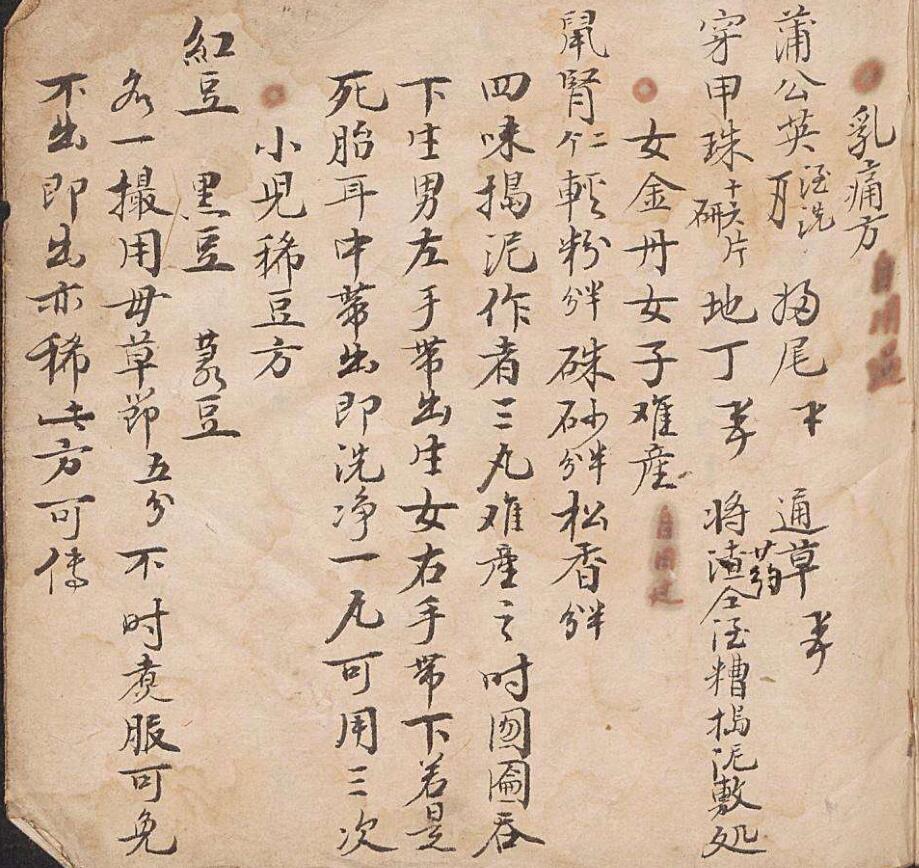 乳痛方 自用過
蒲公英酒洗 歸尾 通草
穿甲珠十六片研 地丁 將藥渣仝酒糟搗泥敷処
女金丹女子难產 自用过
鼠腎仁輕粉分半硃砂分半松香分半
四味搗泥作者三丸难產之时囫圇吞
下生男左手帶出生女右手帶下若是
死胎耳中帶出即洗净一丸可用三次
小児稀豆方
紅豆 黑豆 菉豆
各一撮用毋草節五分不时煮服可免
不出即出亦稀此方可傳